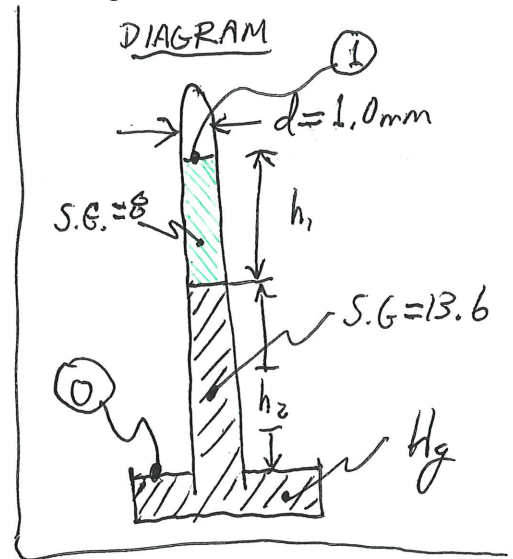 DIAGRAM
1
d=1.0mm
S.G.=8
h₁
S.G=13.6
0
h₂
Hg